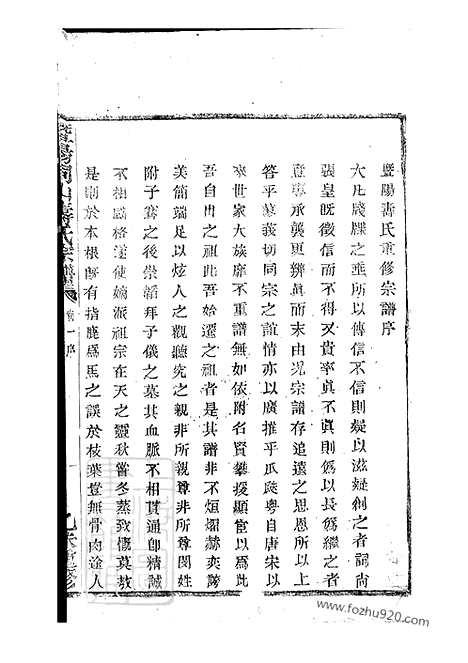 暨陽壽氏重修宗譜序
大凡牒之垂所以傳信不信則疑以滋疑創之者詞尚
張皇旣徵信而不得又貴率真不眞則爲以長爲繼之者
意專承襲更辨眞而末由况宗譜存追遠之思恩所以上
答乎慕義切同宗之誼情亦以廣推乎瓜瓞粤自唐宋以
來世家大族靡不重譜無如依附名賢攀援顯宦以爲此
吾自出之祖此吾始遷之祖者是其譜非不烜燿赫奕誇
美簡端足以炫人之觀聽究之親非所親尊非所尊閔姓
附子騫之後崇韜拜子儀之墓其血脈不相貫通卽精誠
不相感格遂使嫡派祖宗在天之靈秋嘗冬蒸致慨莫敖
是則於本根旣有指鹿爲馬之誤於枝葉豈無骨肉途人
暨陽 山壽氏宗譜
卷一序
www.fozhu920.com